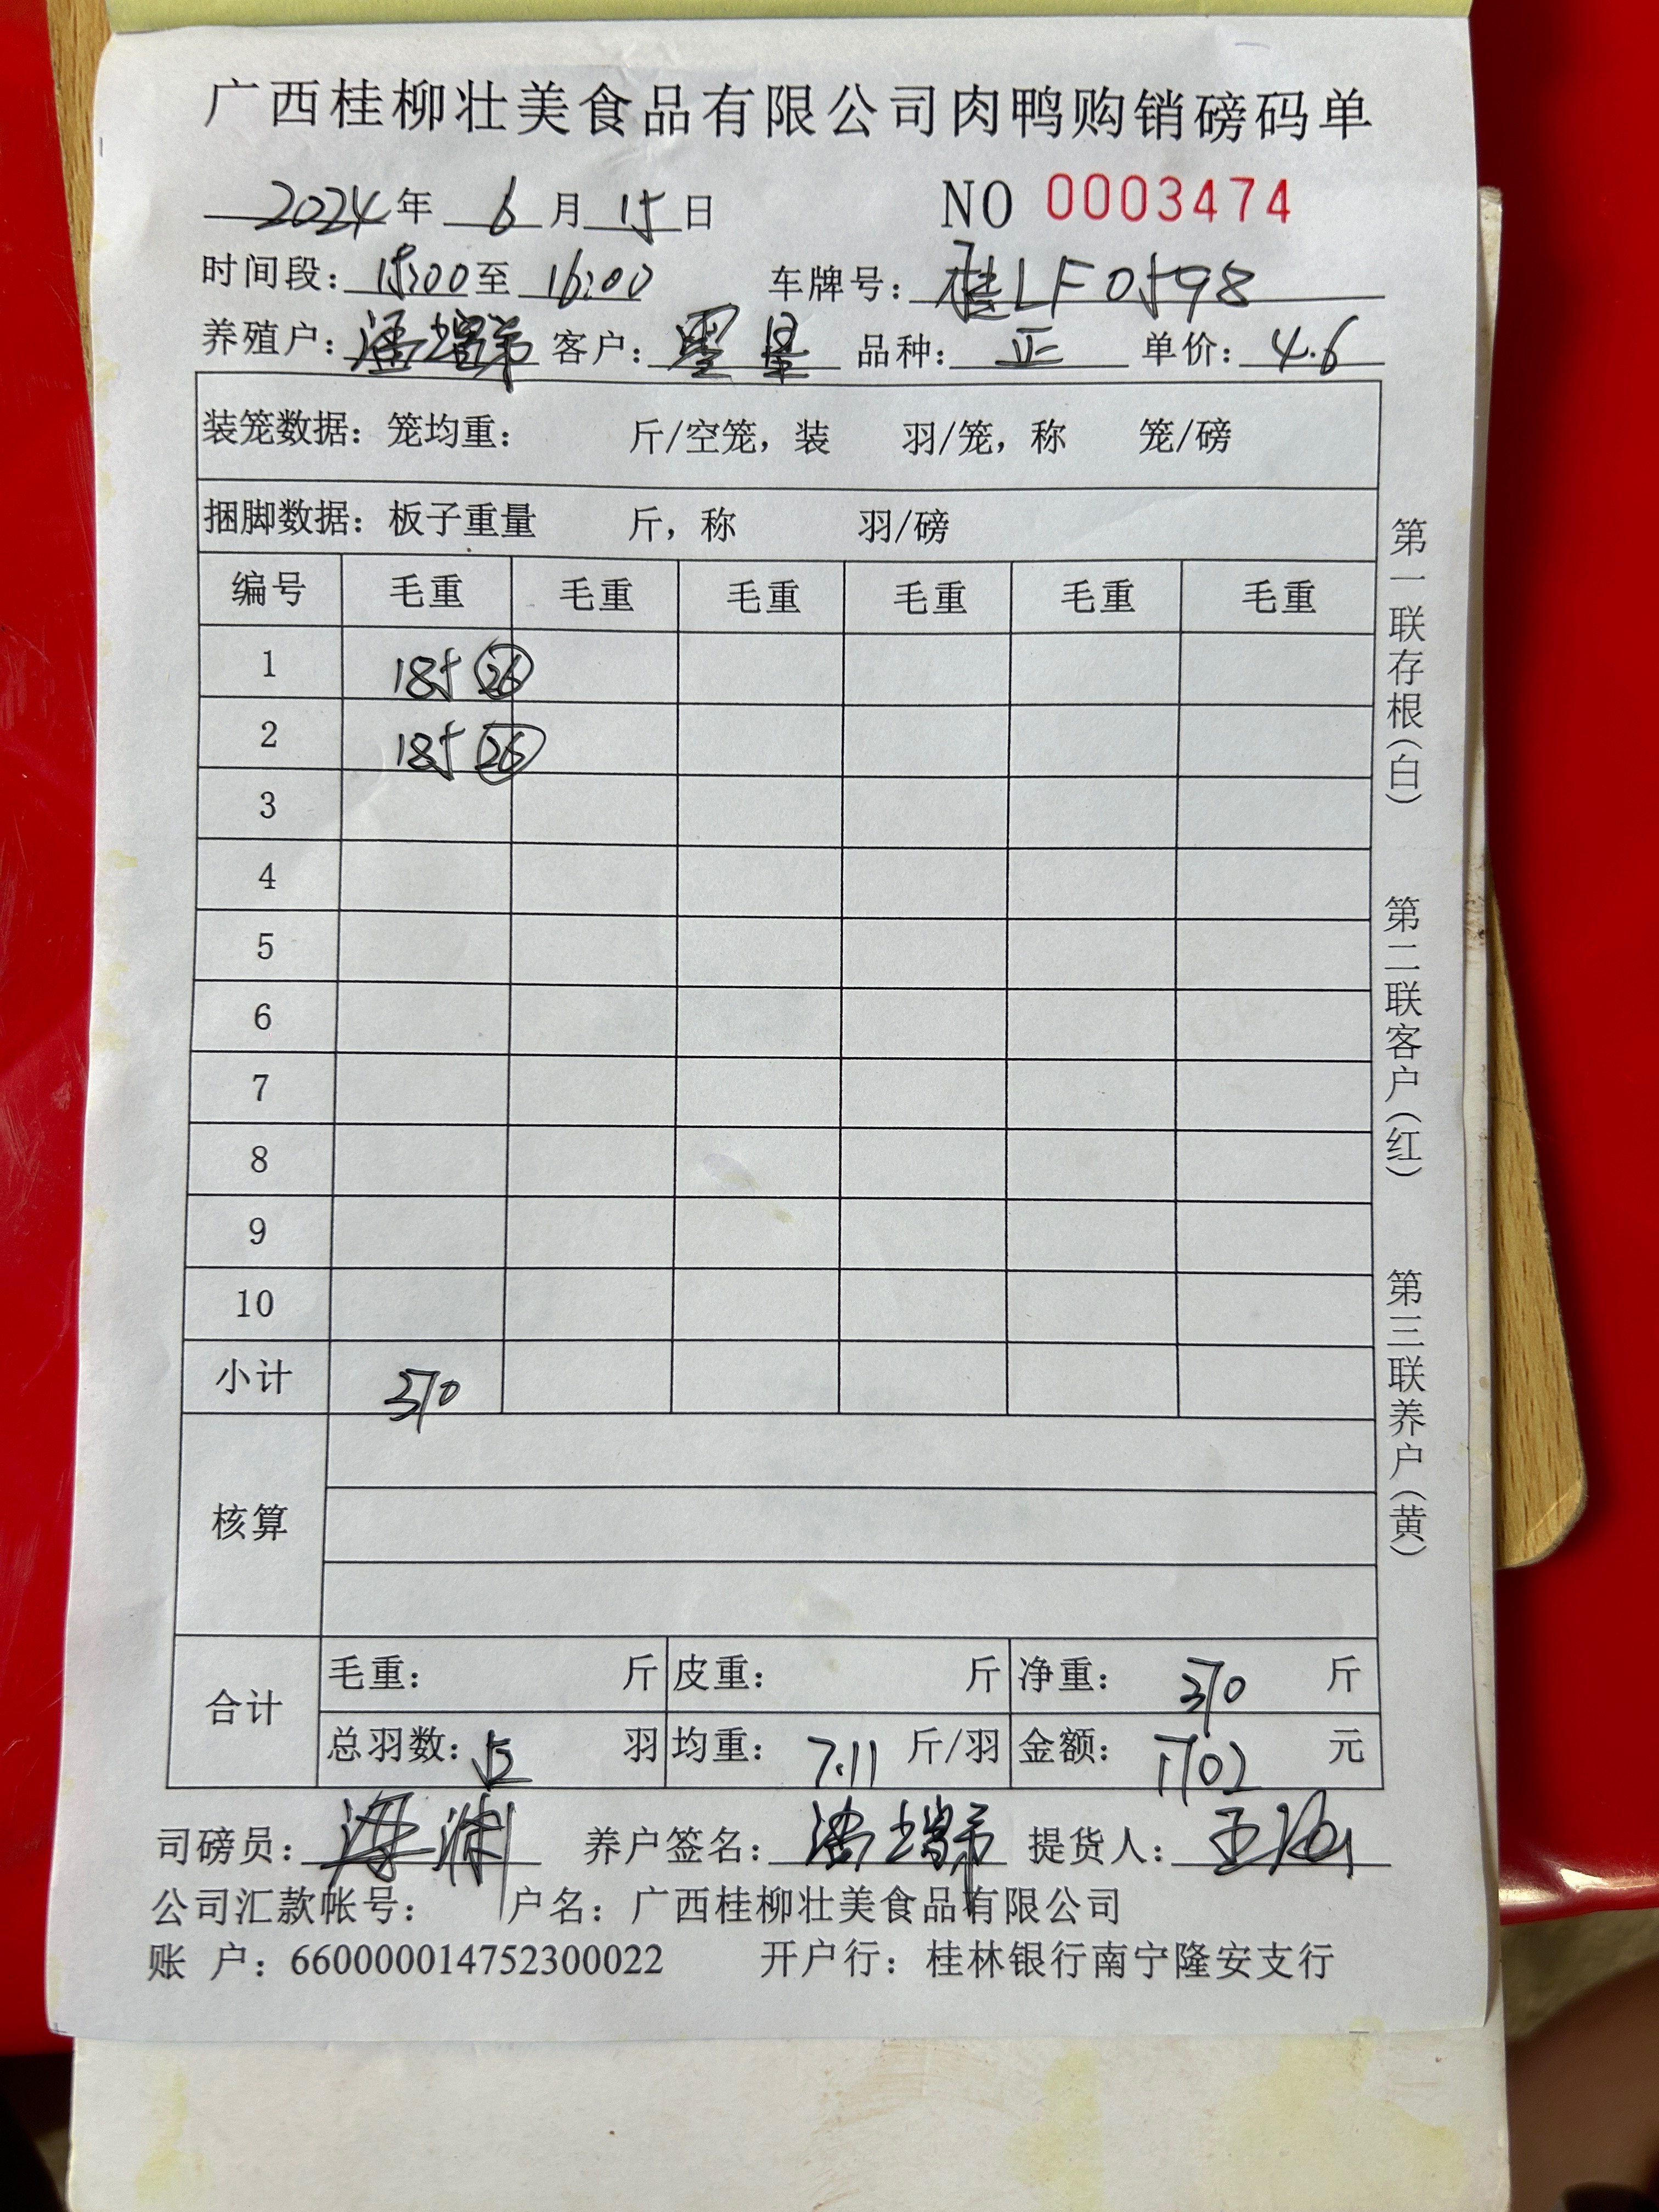 广西桂柳壮美食品有限公司肉鸭购销磅码单
2024年 6 月 15 日 NO 0003474
时间段：15:00 至 16:00 车牌号：桂LF0598
养殖户：潘瑞 客户： 品种：正 单价：4.6
装笼数据：笼均重： 斤/空笼，装 羽/笼，称 笼/磅
捆脚数据：板子重量 斤，称 羽/磅
编号 毛重 毛重 毛重 毛重 毛重 毛重
1 185 26
2 185 26
3
4
5
6
7
8
9
10
小计 370
核算
合计 毛重： 斤 皮重： 斤 净重：370 斤
总羽数：52 羽 均重：7.11 斤/羽 金额：1702 元
司磅员： 养户签名：潘瑞 提货人：王
公司汇款帐号： 户名：广西桂柳壮美食品有限公司
账 户：660000014752300022 开户行：桂林银行南宁隆安支行
第一联存根（白） 第二联客户（红） 第三联养户（黄）